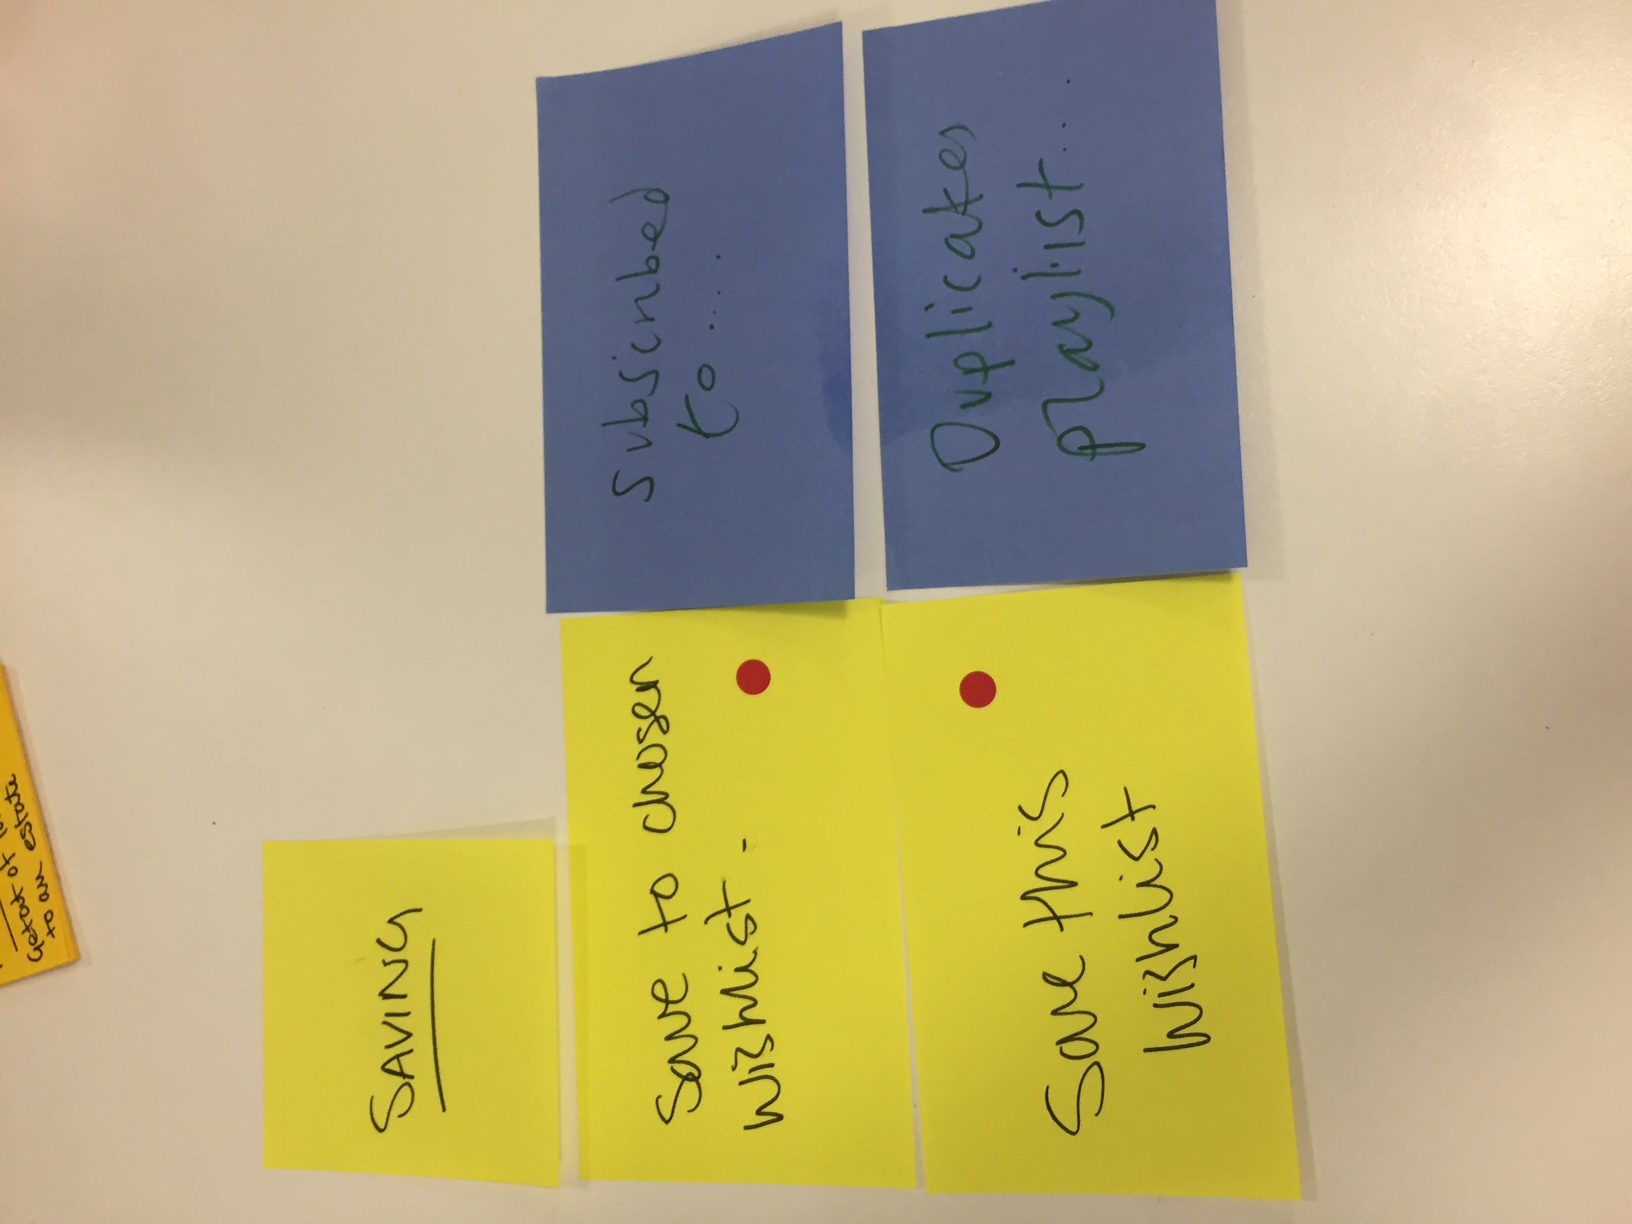 Getout of
to an estate
SAVING
Save to chosen
wishlist.
Subscribed
to....
Save this
wishlist
Duplicates
playlist...